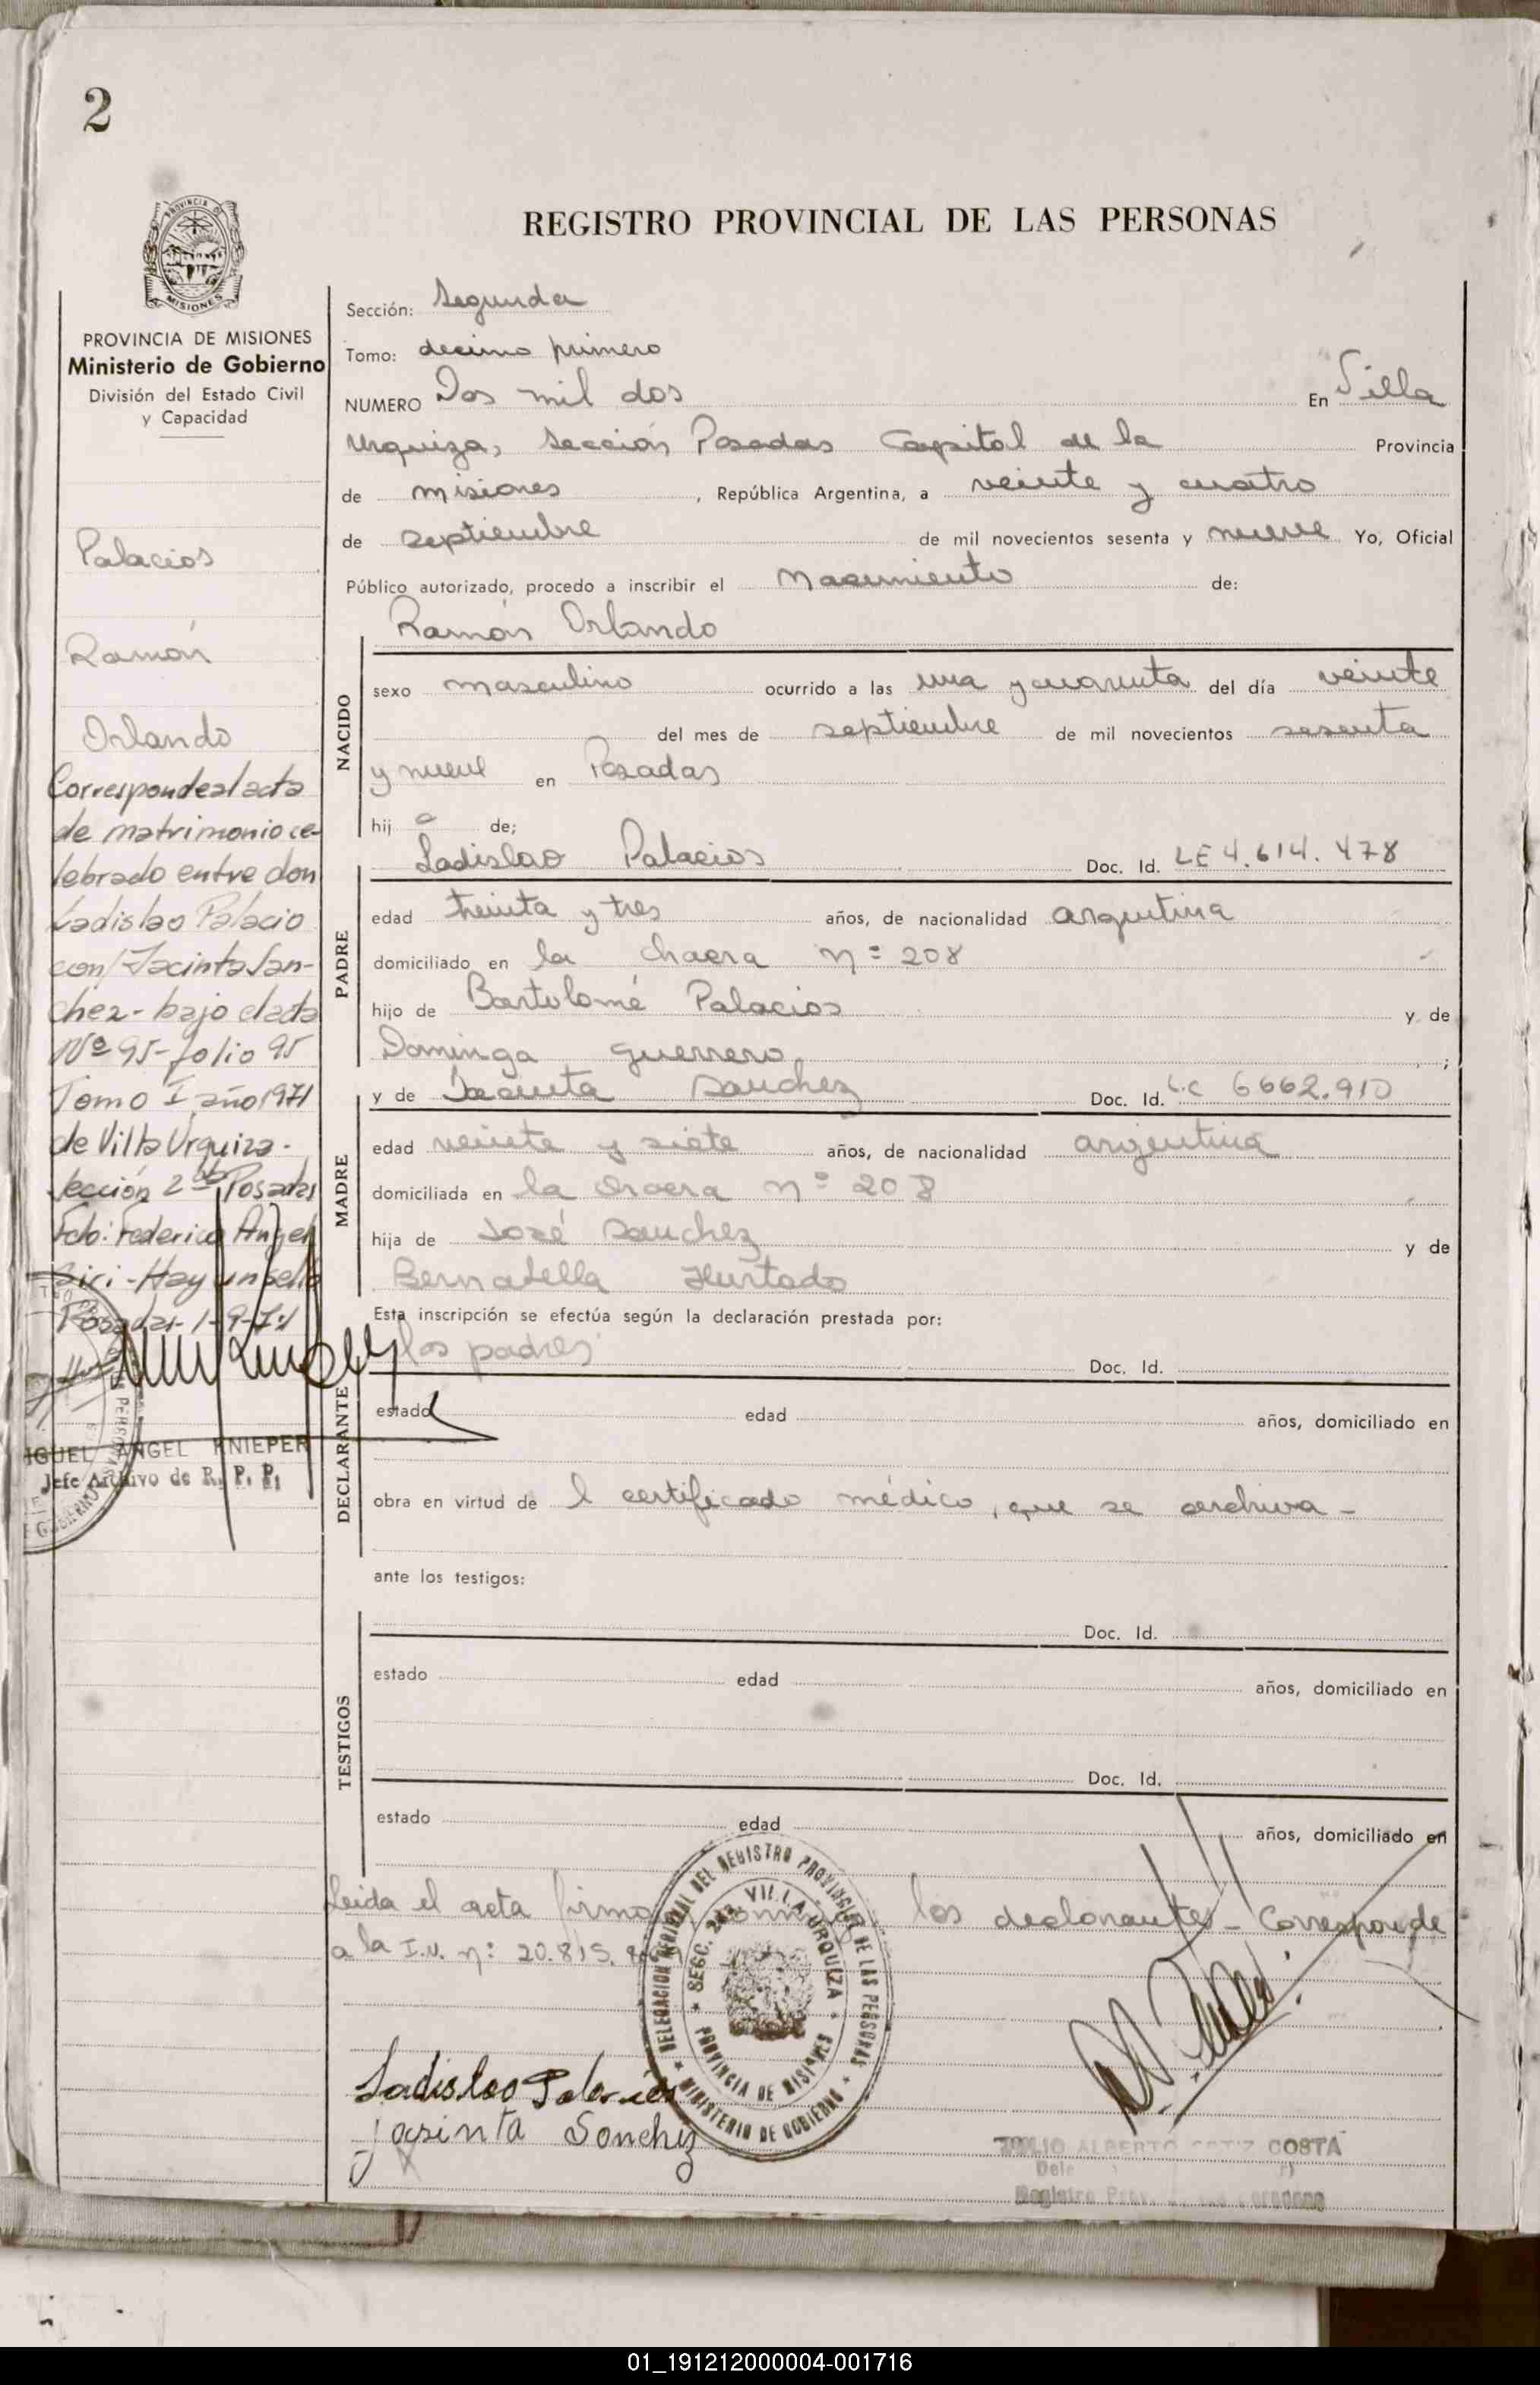 2
REGISTRO PROVINCIAL DE LAS PERSONAS
PROVINCIA
MISIONES
PROVINCIA DE MISIONES
Ministerio de Gobierno
División del Estado Civil
y Capacidad
Palacios
Ramón
Orlando
Corresponde al acta
de matrimonio ce-
lebrado entre don
Ladislao Palacio
con Jacinta San-
chez - bajo el acta
Nº 95 - folio 95
Tomo I año 1971
de Villa Urquiza -
Sección 2da Posadas
Fdo: Federico Angel
Siri - Hay un sello
Posadas 1-9-71
MIGUEL ANGEL KNIEPER
Jefe Archivo de R. P. P.
Sección: Segunda
Tomo: decimo primero
NUMERO Dos mil dos En Villa
Urquiza, Sección Posadas Capital de la Provincia
de misiones, República Argentina, a veinte y cuatro
de septiembre de mil novecientos sesenta y nueve Yo, Oficial
Público autorizado, procedo a inscribir el Nacimiento de:
Ramón Orlando
NACIDO
sexo masculino ocurrido a las una y cuarenta del día veinte
del mes de septiembre de mil novecientos sesenta
y nueve en Posadas
hij o de;
Ladislao Palacios Doc. Id. LE 4.614.478
PADRE
edad treinta y tres años, de nacionalidad argentina
domiciliado en la chacra nº 208
hijo de Bartolomé Palacios y de
Dominga Guerrero ;
y de Jacinta Sanchez Doc. Id. L.C 6662.910
MADRE
edad veinte y siete años, de nacionalidad argentina
domiciliada en la chacra nº 208
hija de José Sanchez y de
Bernabella Hurtado
Esta inscripción se efectúa según la declaración prestada por:
los padres Doc. Id.
DECLARANTE
estado edad años, domiciliado en
obra en virtud de l certificado médico, que se archiva -
ante los testigos:
Doc. Id.
TESTIGOS
estado edad años, domiciliado en
Doc. Id.
estado edad años, domiciliado en
Leida el acta firman conmigo los declarantes - Corresponde
a la I.U. nº: 20.815.
DELEGACION GENERAL DEL REGISTRO PROVINCIAL DE LAS PERSONAS
MINISTERIO DE GOBIERNO
SECC. 2da. VILLA URQUIZA
PROVINCIA DE MISIONES
Ladislao Palacios
jasinta Sonchez
JULIO ALBERTO ORTIZ COSTA
01_191212000004-001716